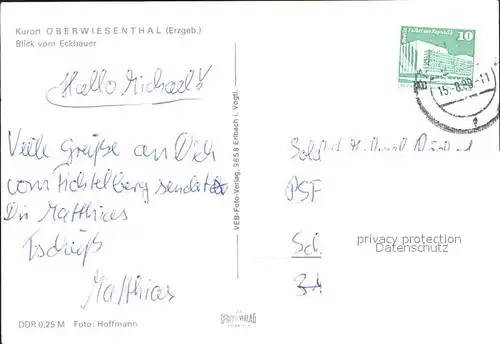 Kurort OBERWIESENTHAL (Erzgeb.)
Blick vom Eckbauer
Hallo Michael!
Viele Grüße an Dich
vom Fichtelberg sendet
Dir Matthias
Tschüß
Matthias
DDR 0,25 M Foto: Hoffmann
VEB-Foto-Verlag, 9658 Erlbach i. Vogtl.
10
15.-8.90-11
Soldat
PSF
Sch
privacy protection
Datenschutz